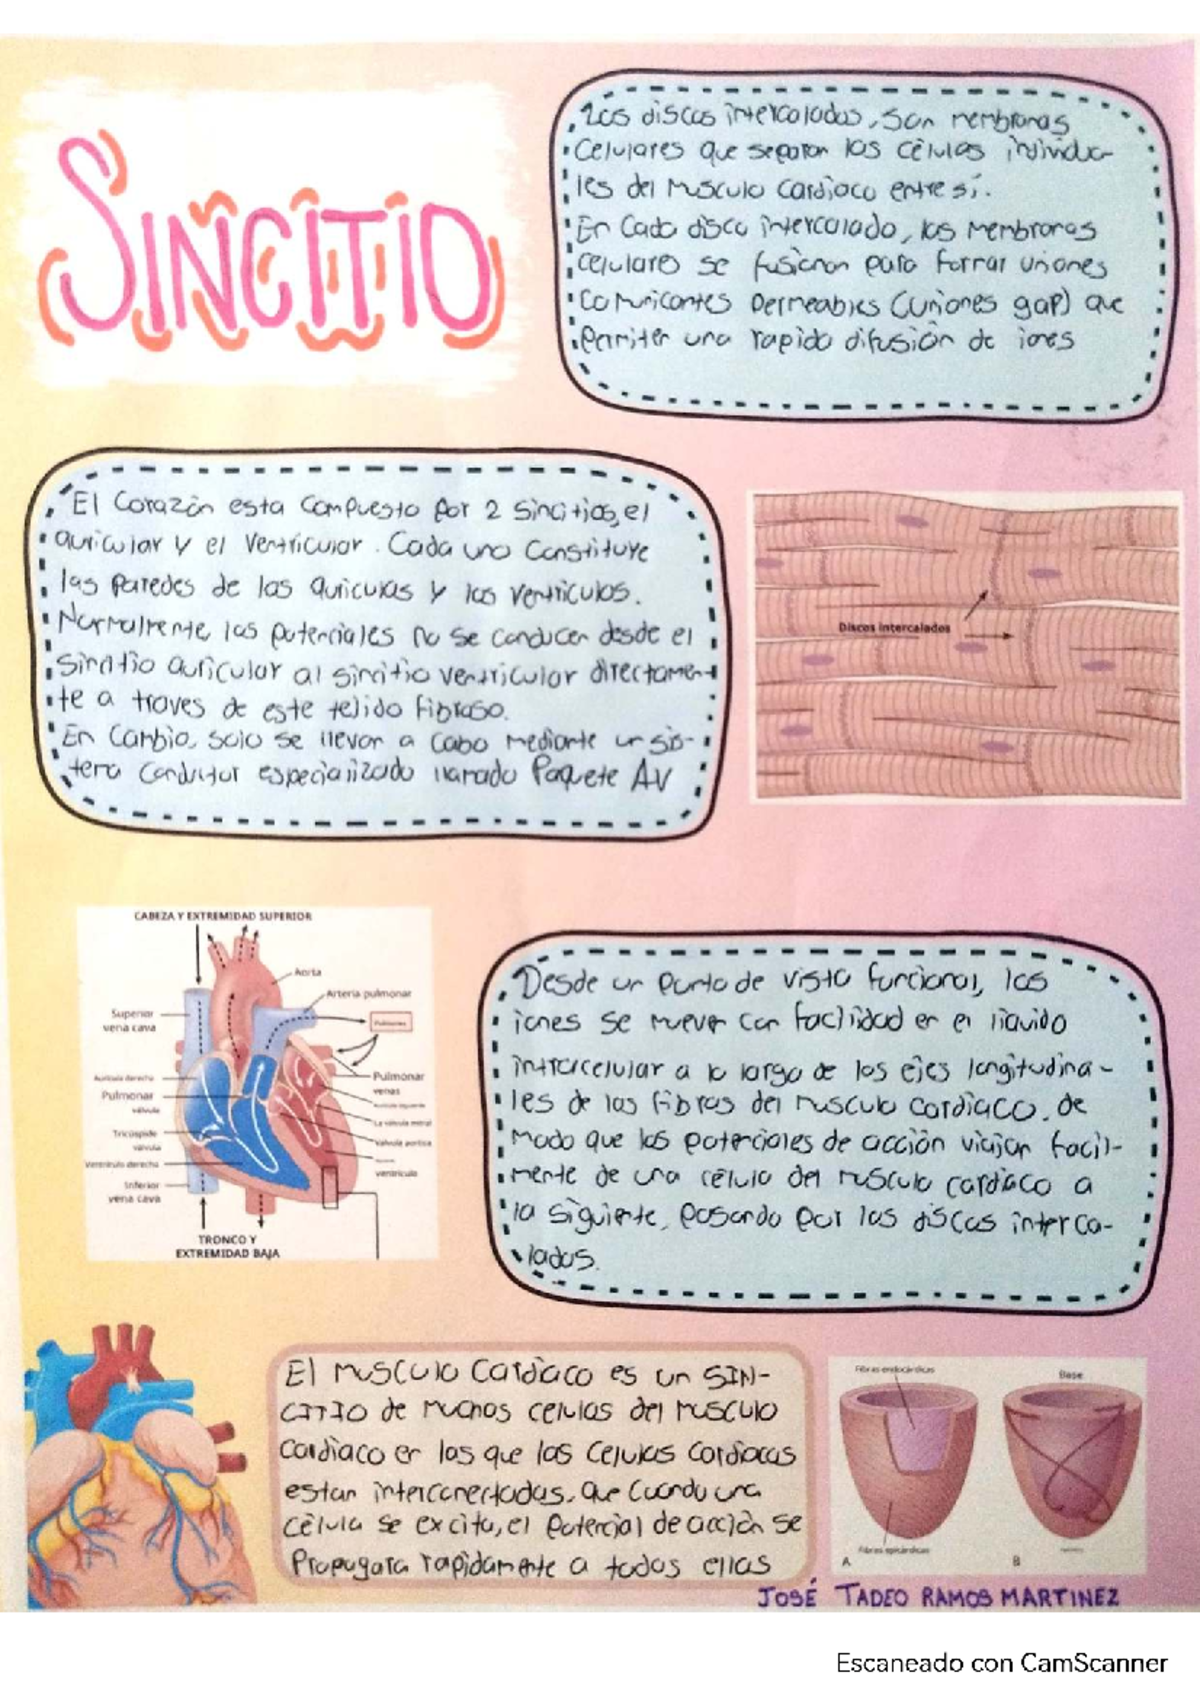 SINCITIO
Los discos intercalados, son membranas
celulares que separan las células individua-
les del musculo cardiaco entre sí.
En cada disco intercalado, las membranas
celulares se fusionan para formar uniones
comunicantes permeables (uniones gap) que
permiten una rapida difusión de iones
El Corazón esta compuesto por 2 sincitios, el
auricular y el ventricular. Cada uno constituye
las paredes de las auriculas y los ventriculos.
Normalmente, los potenciales no se conducen desde el
sincitio auricular al sincitio ventricular directamen-
te a traves de este tejido fibroso.
En cambio, solo se llevan a cabo mediante un sis-
tema conductor especializado llamado Paquete AV
Discos intercalados
CABEZA Y EXTREMIDAD SUPERIOR
Aorta
Arteria pulmonar
Superior
vena cava
Pulmones
Aurícula derecha
Pulmonar
válvula
Pulmonar
venas
Aurícula izquierda
La válvula mitral
Tricúspide
válvula
Válvula aortica
Ventrículo derecho
ventrículo
Inferior
vena cava
TRONCO Y
EXTREMIDAD BAJA
Desde un punto de vista funcional, los
iones se mueven con facilidad en el liquido
intracelular a lo largo de los ejes longitudina-
les de las fibras del musculo cardiaco, de
modo que los potenciales de acción viajan facil-
mente de una célula del musculo cardiaco a
la siguiente, pasando por los discos interca-
lados.
El musculo cardiaco es un SIN-
CITIO de muchos celulas del musculo
cardiaco en las que las celulas cardiacas
estan interconectadas, que cuando una
célula se excita, el potencial de acción se
propagara rapidamente a todas ellas
Fibras endocárdicas
Base
Fibras epicárdicas
A
B
JOSÉ TADEO RAMOS MARTINEZ
Escaneado con CamScanner